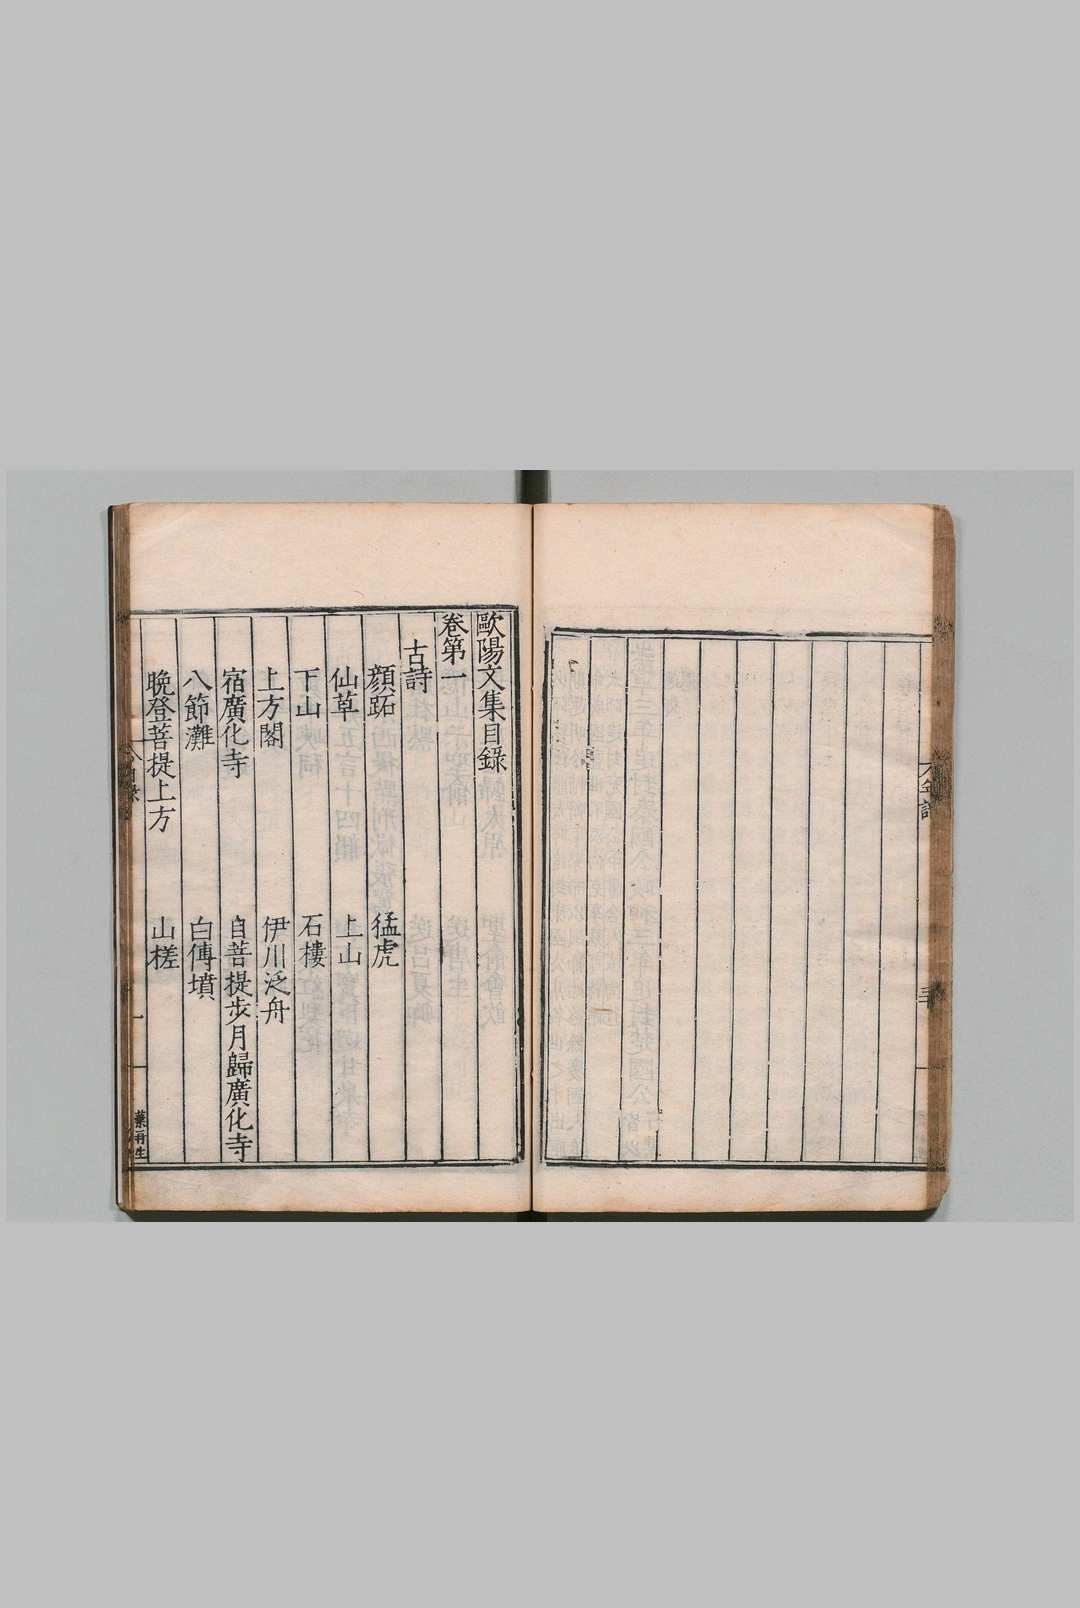 歐陽文集目錄
卷第一
古詩
顏跖 猛虎
仙草 上山
下山 石樓
上方閣 伊川泛舟
宿廣化寺 自菩提步月歸廣化寺
八節灘 白傅墳
晚登菩提上方 山槎
一